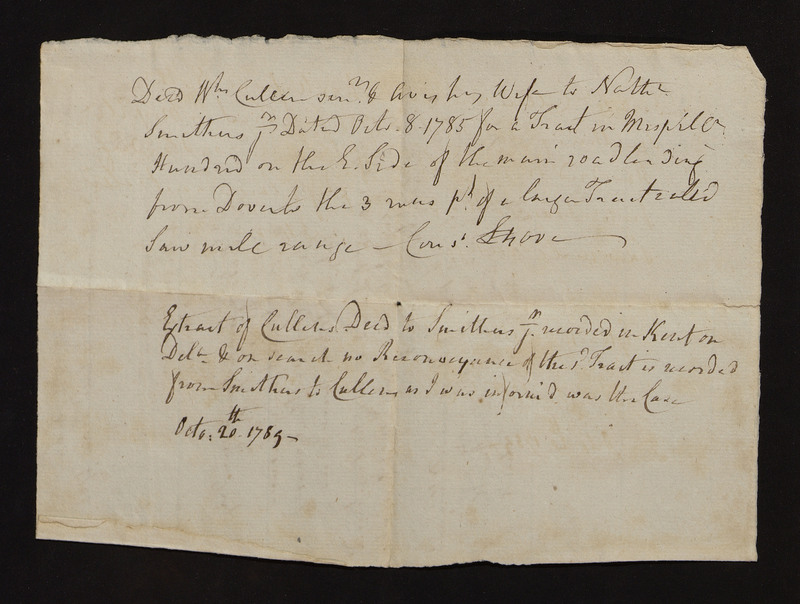 Deed Wm. Cullen senr. & Avis his Wife to Nathl.
Smithers Jr. Dated Octo. 8. 1785 for a Tract in Mispilln
Hundred on the E. Side of the main road leading
from Dover to the 3 runs pt. of a larger Tract called
Saw mill range – Cons.
Extract of Cullens Deed to Smithers Jr. recorded in Kent on
Delr. & on search no Reconveyance of the sd. Tract is recorded
from Smithers to Cullen as I was inform'd was the Case
Octo. 20th. 1789 –